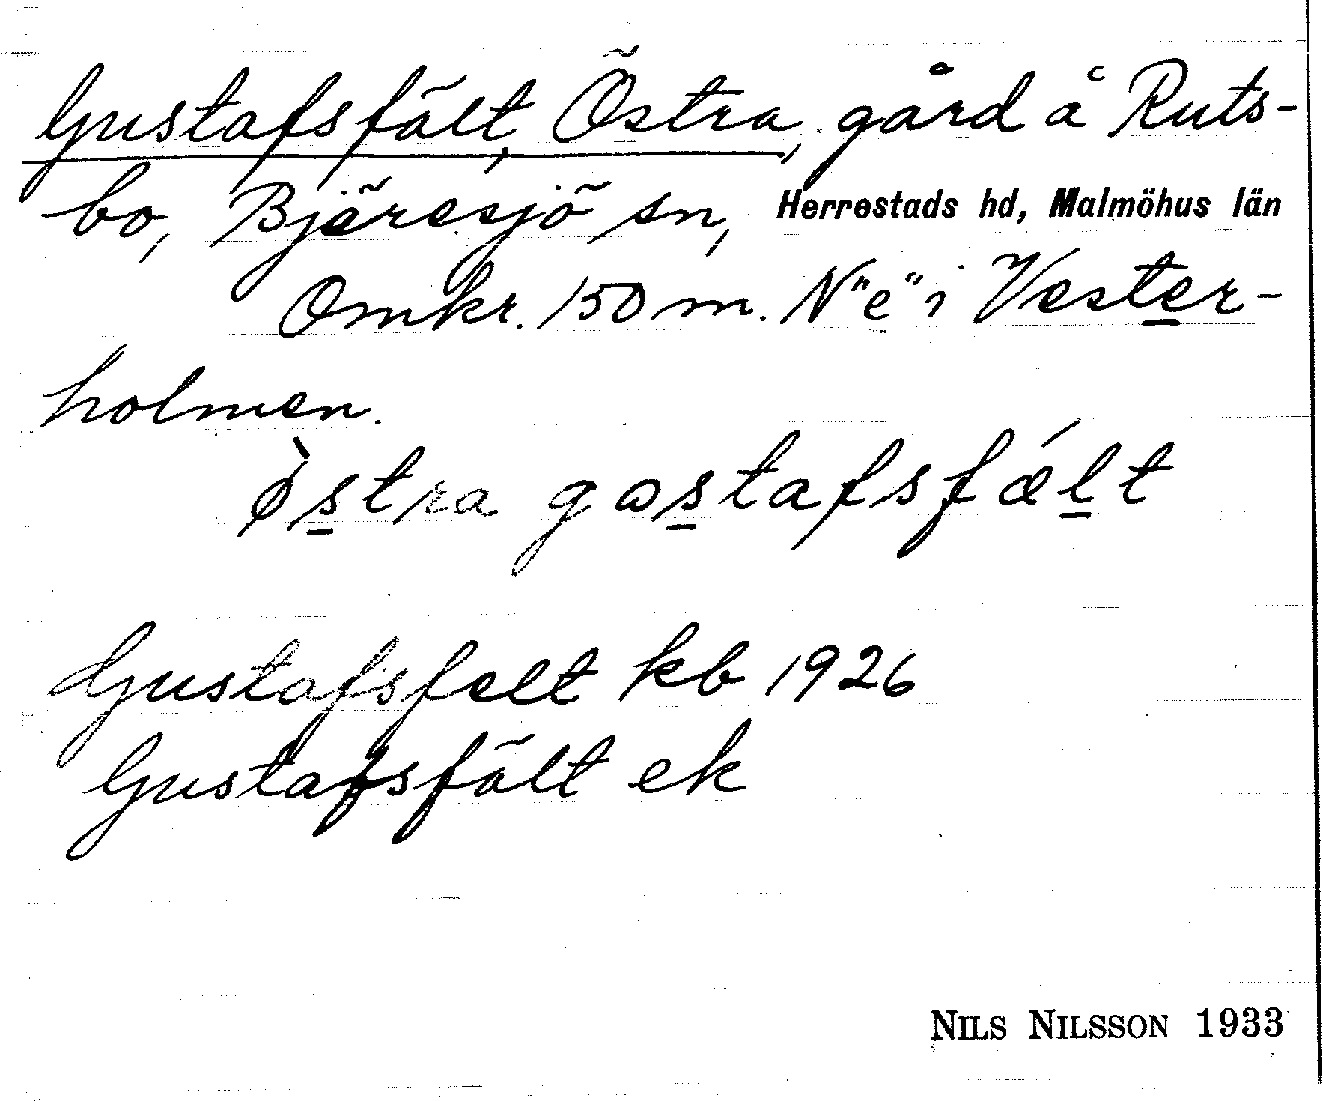 Gustafsfält, Östra, gård å Ruts-
bo, Bjäresjö sn, Herrestads hd, Malmöhus län
Omkr. 150 m. N "e" i Vester-
holmen.
ø̀stra gastafsfǽlt
Gustafsfelt kb 1926
Gustafsfält ek
NILS NILSSON 1933